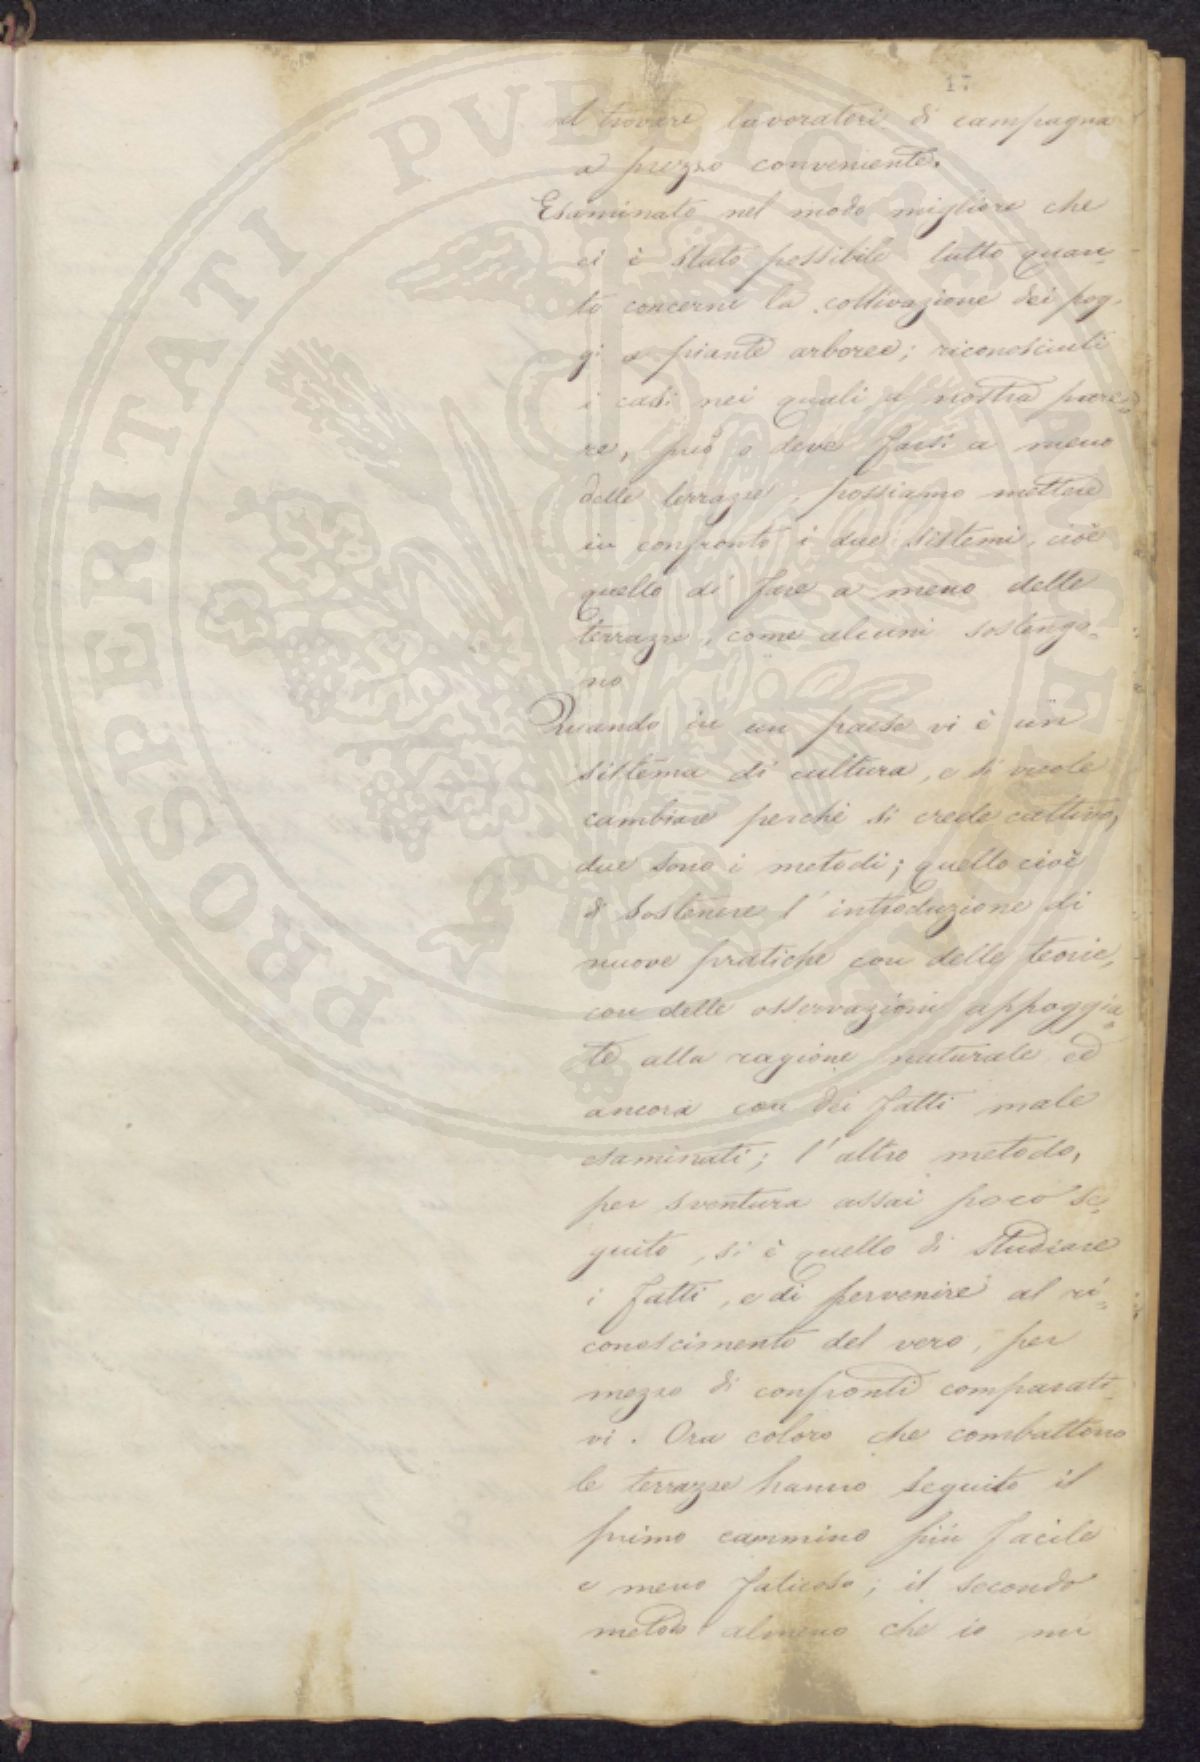 17
al trovare lavoratori di campagna
a prezzo conveniente.
Esaminato nel modo migliore che
ci è stato possibile tutto quan-
to concerne la coltivazione dei pog-
gi a piante arboree; riconosciuti
i casi nei quali, a nostro pare-
re, può o deve farsi a meno
delle terrazze, possiamo mettere
in confronto i due sistemi, cioè
quello di fare a meno delle
terrazze, come alcuni sostengo-
no
Quando in un paese vi è un
sistema di cultura, e si vuole
cambiare perchè si crede cattivo,
due sono i metodi; quello cioè
di sostenere l'introduzione di
nuove pratiche con delle teorie,
con delle osservazioni appoggia-
te alla ragione naturale ed
ancora con dei fatti male
esaminati; l'altro metodo,
per sventura assai poco se-
guito, si è quello di studiare
i fatti, e di pervenire al ri-
conoscimento del vero, per
mezzo di confronti comparati-
vi. Ora coloro che combattono
le terrazze hanno seguito il
primo cammino più facile
e meno faticoso; il secondo
metodo almeno che io mi
PROSPERITATI PVBLICAE AVGENDAE